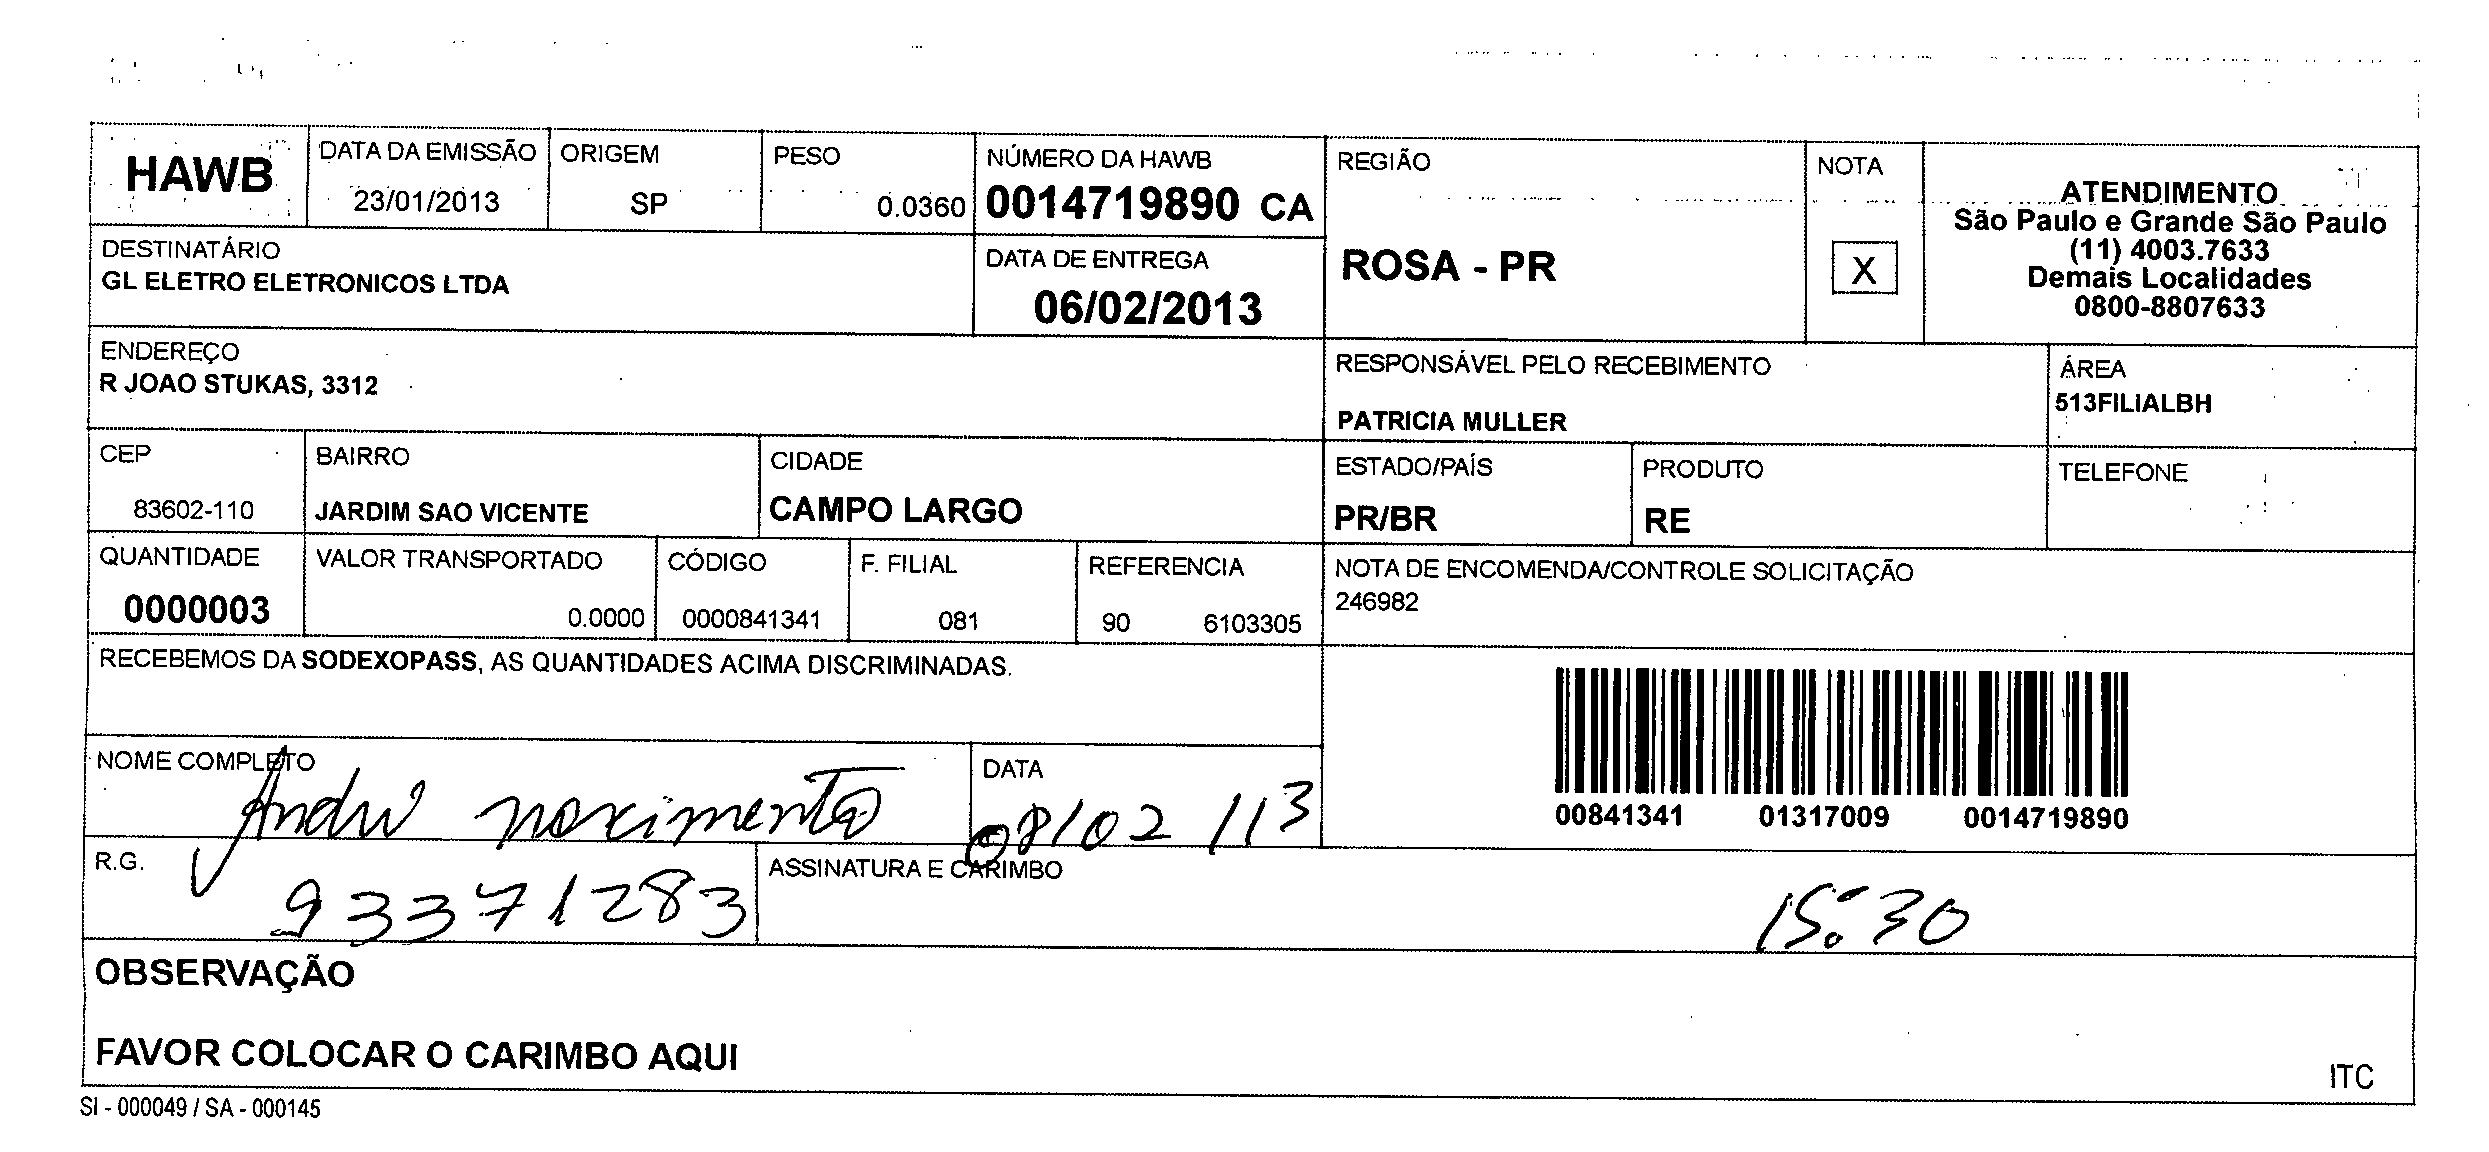 HAWB
DATA DA EMISSÃO
23/01/2013
ORIGEM
SP
PESO
0.0360
NÚMERO DA HAWB
0014719890 CA
REGIÃO
ROSA - PR
NOTA
X
ATENDIMENTO
São Paulo e Grande São Paulo
(11) 4003.7633
Demais Localidades
0800-8807633
DESTINATÁRIO
GL ELETRO ELETRONICOS LTDA
DATA DE ENTREGA
06/02/2013
ENDEREÇO
R JOAO STUKAS, 3312
RESPONSÁVEL PELO RECEBIMENTO
PATRICIA MULLER
ÁREA
513FILIALBH
CEP
83602-110
BAIRRO
JARDIM SAO VICENTE
CIDADE
CAMPO LARGO
ESTADO/PAÍS
PR/BR
PRODUTO
RE
TELEFONE
QUANTIDADE
0000003
VALOR TRANSPORTADO
0.0000
CÓDIGO
0000841341
F. FILIAL
081
REFERENCIA
90 6103305
NOTA DE ENCOMENDA/CONTROLE SOLICITAÇÃO
246982
RECEBEMOS DA SODEXOPASS, AS QUANTIDADES ACIMA DISCRIMINADAS.
00841341 01317009 0014719890
NOME COMPLETO
André nascimento
DATA
08/02/13
R.G.
93371283
ASSINATURA E CARIMBO
15:30
OBSERVAÇÃO
FAVOR COLOCAR O CARIMBO AQUI
ITC
SI - 000049 / SA - 000145